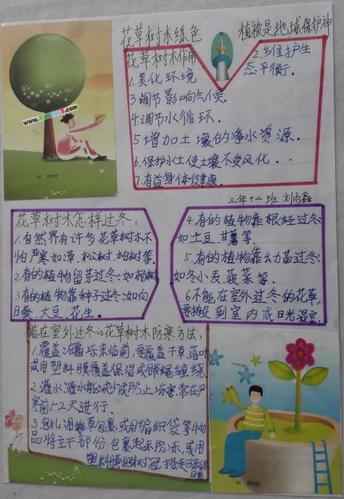 花草树木绿色
植被是地球保护神
花草树木作用
1.美化环境
2.维护生
态平衡.
3.调节影响气候.
4.调节水循环.
5.增加土壤的净水资源.
6.保护水土使土壤不受风化..
7.有益身体健康.
三年十二班
花草树木怎样过冬:
1.自然界有许多花草树木不
怕严寒如:草,松树,柏树等.
2.有的植物留芽过冬:如杨树
3.有的植物靠种子过冬:如向
日葵、大豆、花生.
4.有的植物靠根经过冬:
如土豆,甘薯等.
5.有的植物靠幼苗过冬:
如冬小麦,菠菜等.
6.不能在室外过冬的花草,
到室内或日光温室.
能在室外过冬的花草树木防寒方法:
1.覆盖:在霜冻来临前,覆盖干草,落叶
或用塑料膜覆盖保温或用绳缠绕.
2.灌水:灌水能减少或防止冻害,常在严
寒前1-2天进行.
3.包扎:用稻草包裹或用编织袋等物
品将主干部份包裹起来防冻,或用
塑料膜把树冠